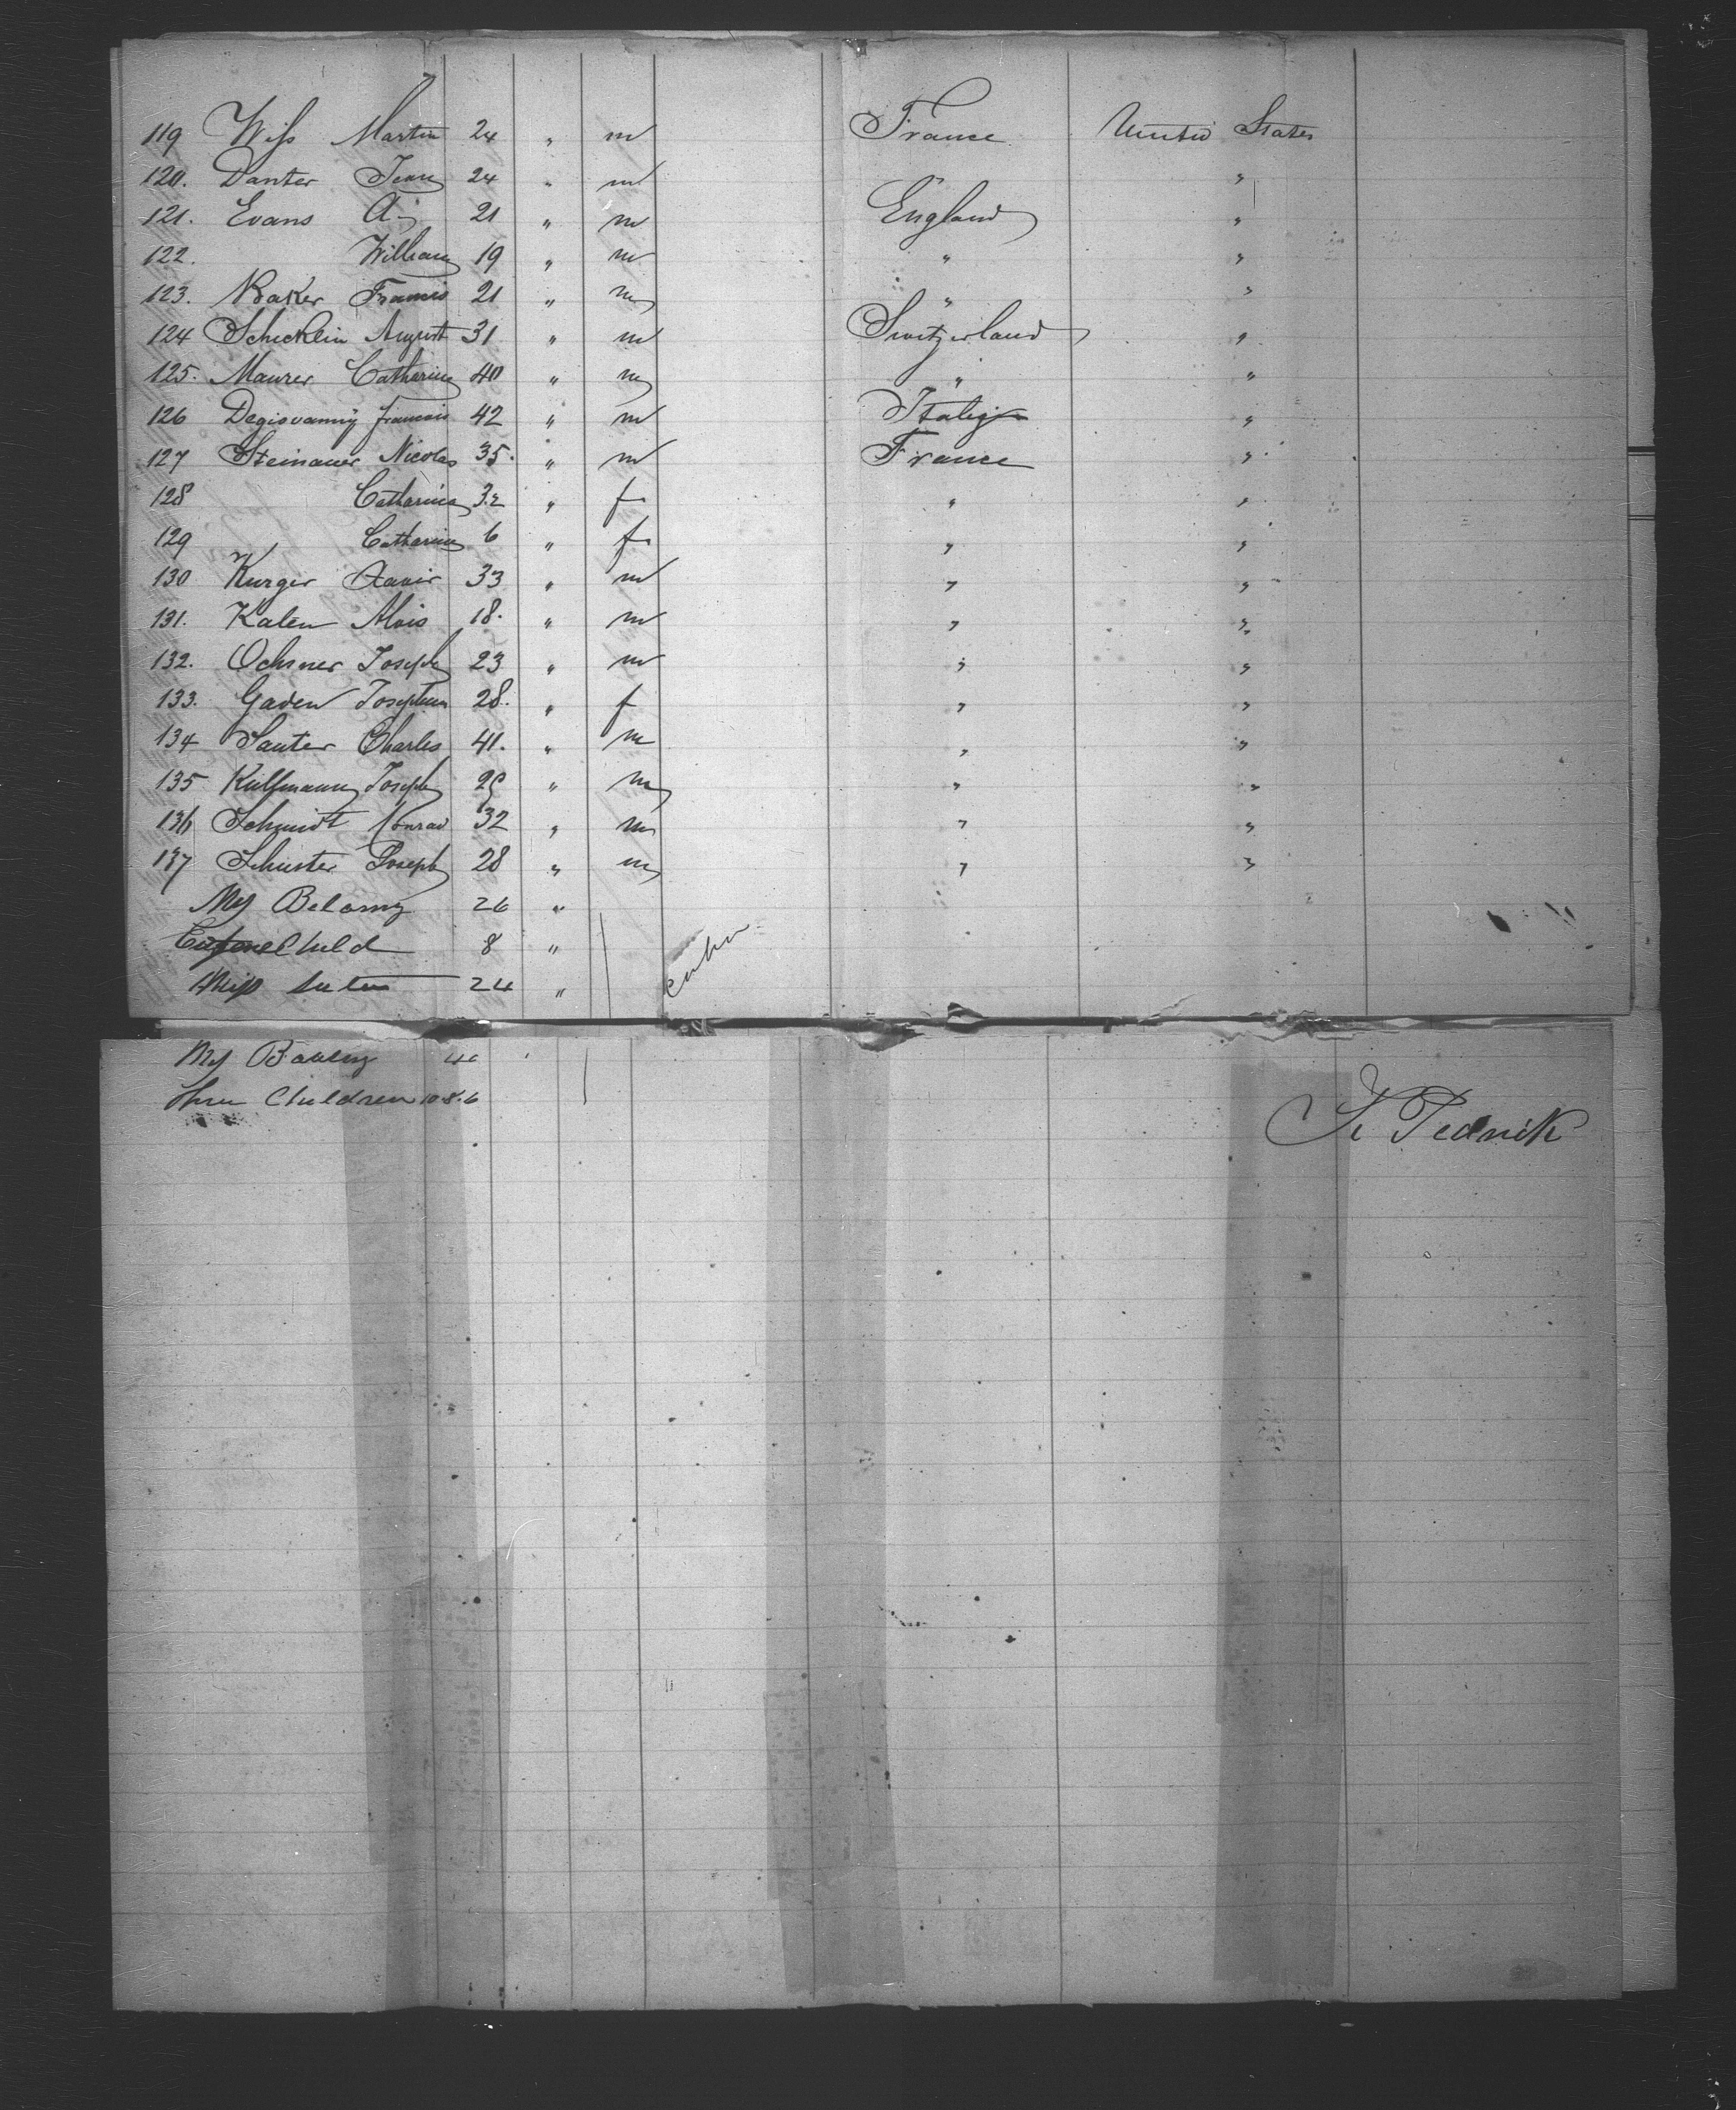 119 Wiss Martin 24 " m France United States
120. Danter Jean 24 " m " "
121. Evans A. 21 " m England "
122. William 19 " m " "
123. Baker Francis 21 " m " "
124 Schicklin August 31 " m Switzerland "
125. Maurer Catharine 40 " m " "
126 Degiovanny francois 42 " m Italy "
127 Steinauer Nicolas 35. " m France "
128 Catharina 32 " f " "
129 Catharine 6 " f " "
130 Kurger Xavir 33 " m " "
131. Kalen Alois 18. " m " "
132. Ochsner Joseph 23 " m " "
133. Gaden Josephine 28. " f " "
134 Sauter Charles 41. " m " "
135 Kulfmann Joseph 25 " m " "
136 Schmidt Conrad 32 " m " "
137 Schuster Joseph 28 " m " "
Mrs Belamy 26 "
Child 8 "
Miss 24 "
Mrs 46
Three Children 10.8.6